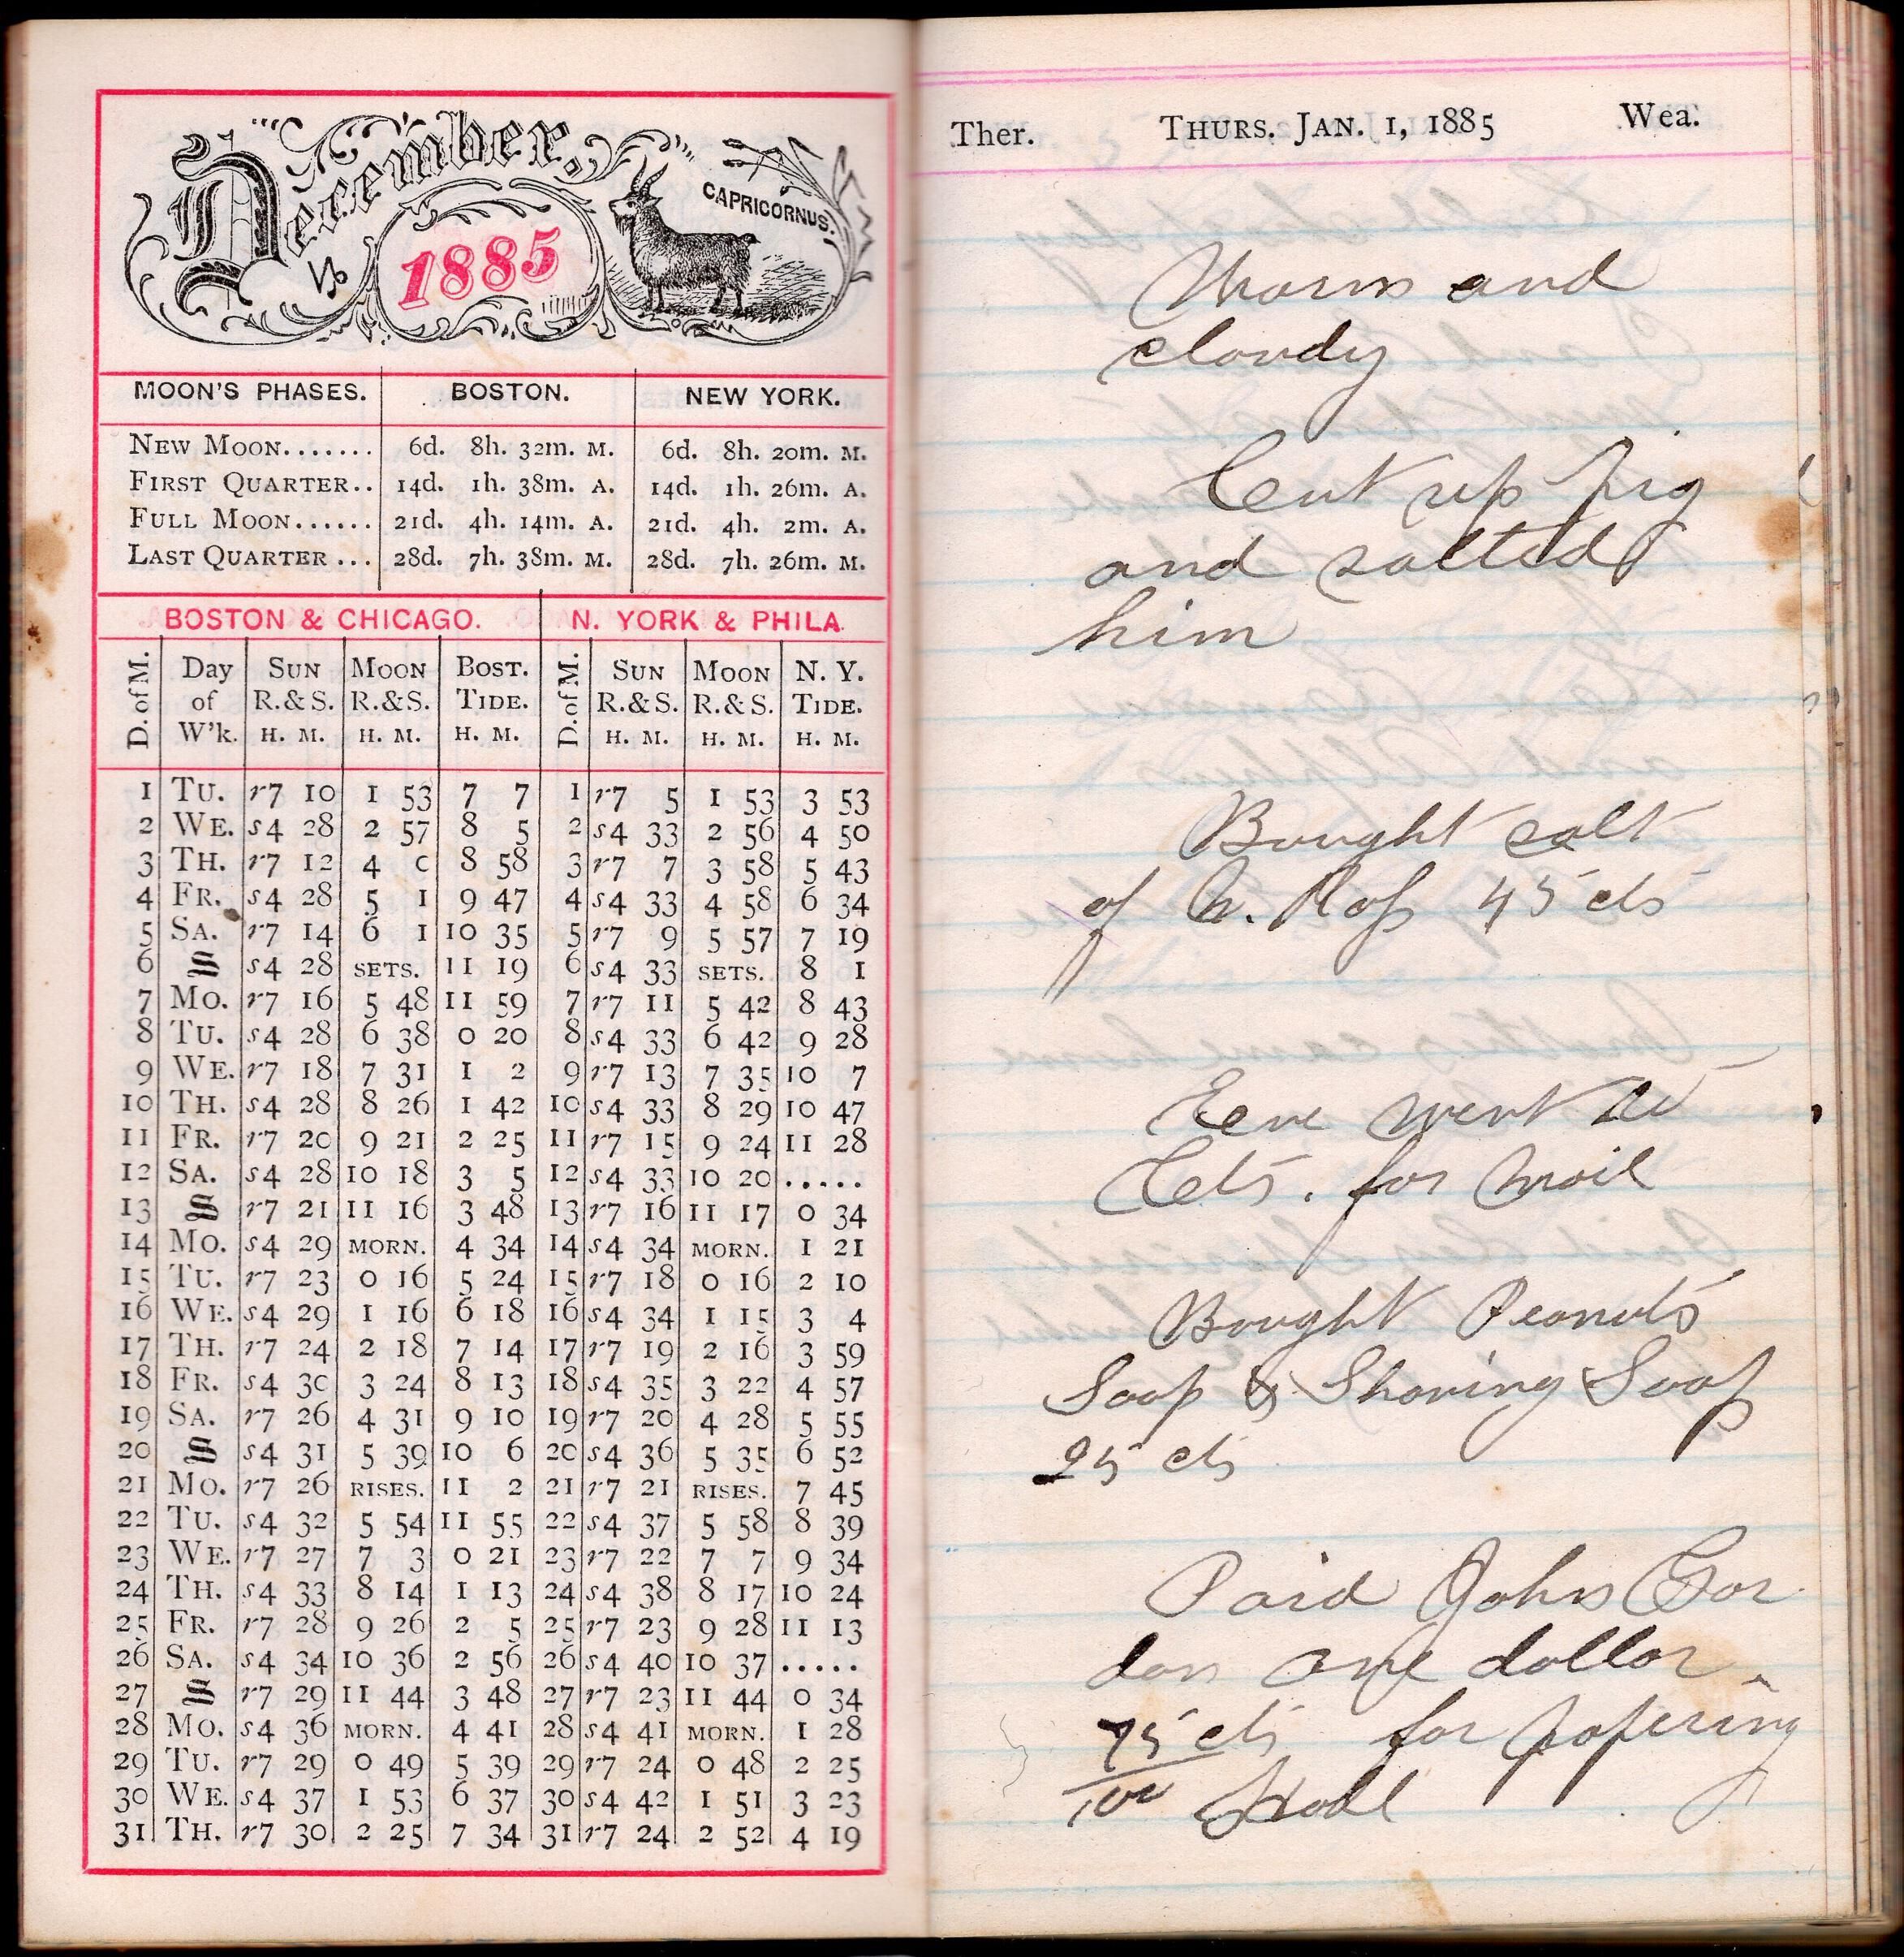 December,
1885
CAPRICORNUS.
MOON'S PHASES. BOSTON. NEW YORK.
NEW MOON....... 6d. 8h. 32m. M. 6d. 8h. 20m. M.
FIRST QUARTER.. 14d. 1h. 38m. A. 14d. 1h. 26m. A.
FULL MOON...... 21d. 4h. 14m. A. 21d. 4h. 2m. A.
LAST QUARTER ... 28d. 7h. 38m. M. 28d. 7h. 26m. M.
BOSTON & CHICAGO. N. YORK & PHILA
D. of M. Day of W'k. SUN R.&S. H. M. MOON R.&S. H. M. BOST. TIDE. H. M. D. of M. SUN R.&S. H. M. MOON R.&S. H. M. N. Y. TIDE. H. M.
1 TU. r7 10 1 53 7 7 1 r7 5 1 53 3 53
2 WE. s4 28 2 57 8 5 2 s4 33 2 56 4 50
3 TH. r7 12 4 0 8 58 3 r7 7 3 58 5 43
4 FR. s4 28 5 1 9 47 4 s4 33 4 58 6 34
5 SA. r7 14 6 1 10 35 5 r7 9 5 57 7 19
6 S s4 28 SETS. 11 19 6 s4 33 SETS. 8 1
7 MO. r7 16 5 48 11 59 7 r7 11 5 42 8 43
8 TU. s4 28 6 38 0 20 8 s4 33 6 42 9 28
9 WE. r7 18 7 31 1 2 9 r7 13 7 35 10 7
10 TH. s4 28 8 26 1 42 10 s4 33 8 29 10 47
11 FR. r7 20 9 21 2 25 11 r7 15 9 24 11 28
12 SA. s4 28 10 18 3 5 12 s4 33 10 20 .....
13 S r7 21 11 16 3 48 13 r7 16 11 17 0 34
14 MO. s4 29 MORN. 4 34 14 s4 34 MORN. 1 21
15 TU. r7 23 0 16 5 24 15 r7 18 0 16 2 10
16 WE. s4 29 1 16 6 18 16 s4 34 1 15 3 4
17 TH. r7 24 2 18 7 14 17 r7 19 2 16 3 59
18 FR. s4 30 3 24 8 13 18 s4 35 3 22 4 57
19 SA. r7 26 4 31 9 10 19 r7 20 4 28 5 55
20 S s4 31 5 39 10 6 20 s4 36 5 35 6 52
21 MO. r7 26 RISES. 11 2 21 r7 21 RISES. 7 45
22 TU. s4 32 5 54 11 55 22 s4 37 5 58 8 39
23 WE. r7 27 7 3 0 21 23 r7 22 7 7 9 34
24 TH. s4 33 8 14 1 13 24 s4 38 8 17 10 24
25 FR. r7 28 9 26 2 5 25 r7 23 9 28 11 13
26 SA. s4 34 10 36 2 56 26 s4 40 10 37 .....
27 S r7 29 11 44 3 48 27 r7 23 11 44 0 34
28 MO. s4 36 MORN. 4 41 28 s4 41 MORN. 1 28
29 TU. r7 29 0 49 5 39 29 r7 24 0 48 2 25
30 WE. s4 37 1 53 6 37 30 s4 42 1 51 3 23
31 TH. r7 30 2 25 7 34 31 r7 24 2 52 4 19
Ther. THURS. JAN. 1, 1885 Wea.
Warm and
cloudy
Cut up pig
and salted
him
Bought salt
of Ross 45 cts
Eve went to
for mail
Bought Peanuts
Soap & Shaving Soap
25 cts
Paid John Gor
don one dollar
75 cts for papering
100 Hall